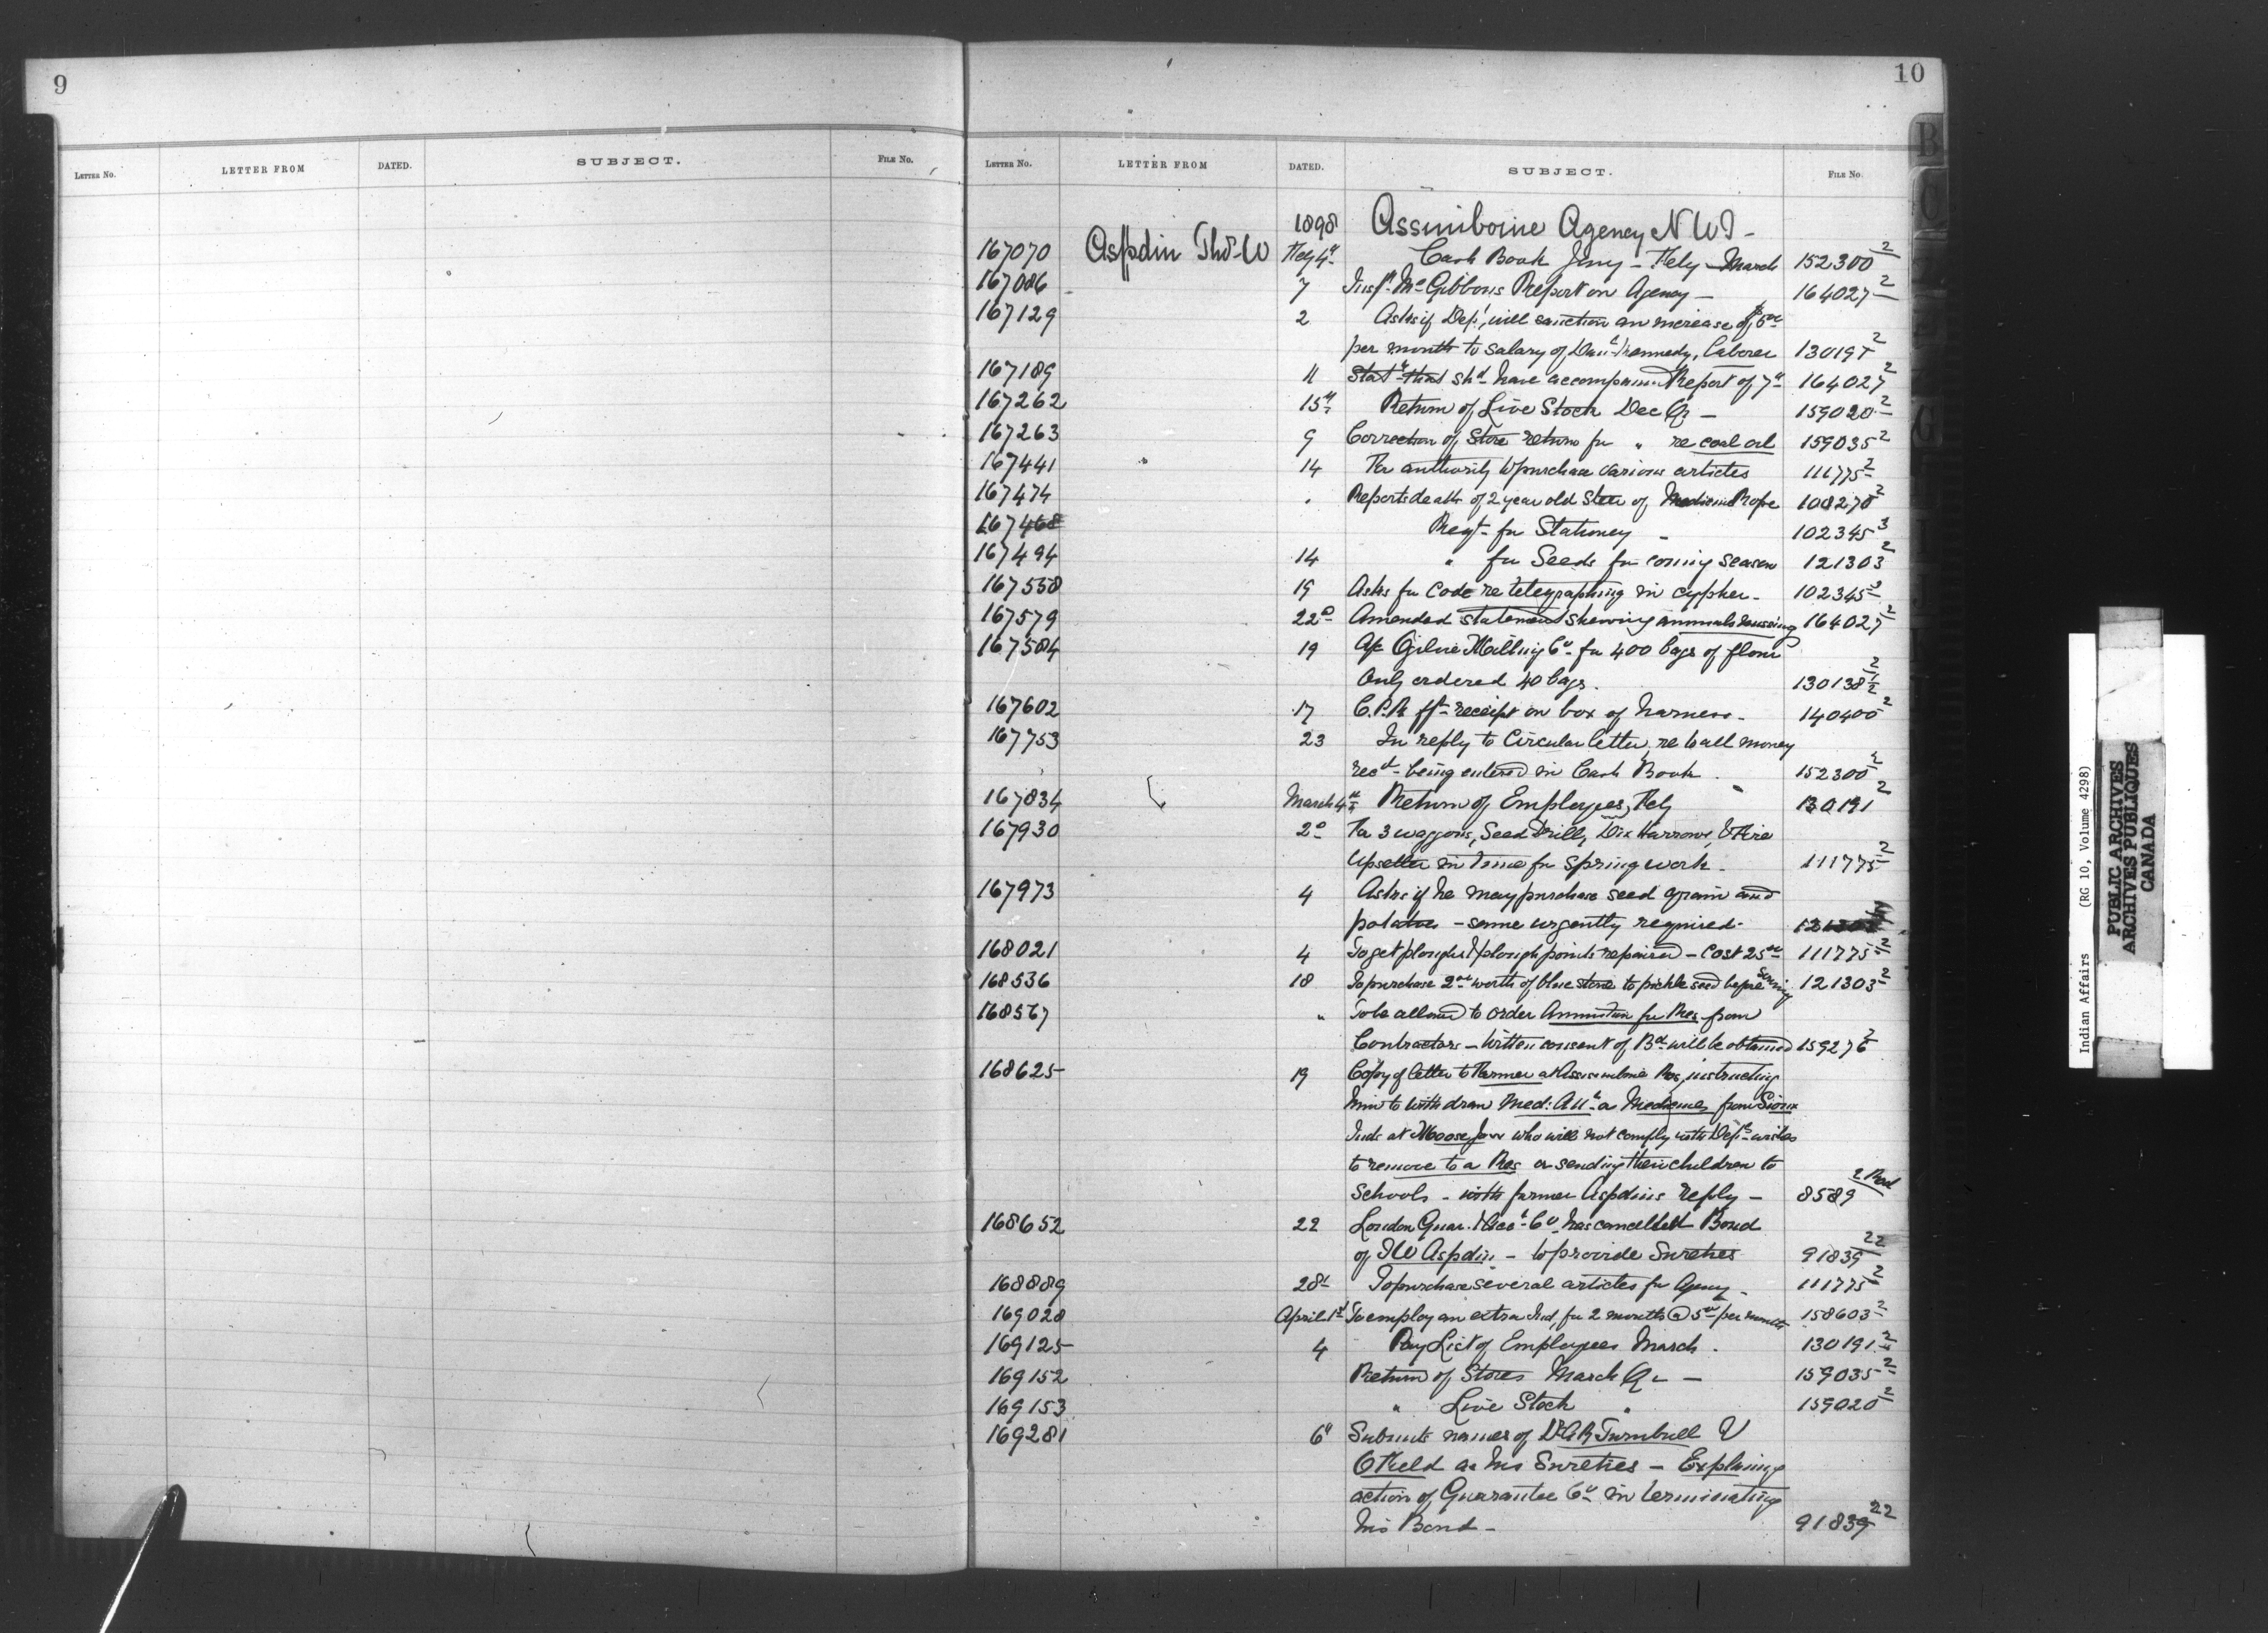 9
LETTER No. LETTER FROM DATED. SUBJECT. FILE No.
10
LETTER No. LETTER FROM DATED. SUBJECT. FILE No.
1898 Assiniboine Agency N W T -
167070 Aspdin Tho- W Feby 4th Cash Book Jany - Feby - March 152300 2
167086 7 Insp. McGibbons Report on Agency - 164027 2
167129 2 Asks if Dept, will sanction an increase of $5 00
per month to salary of Dan Kennedy, Laborer 130191 2
167189 11 Stat that shd have accompanied Report of 7th 164027 2
167262 15th Return of Live Stock Dec Qr - 159020 2
167263 9 Correction of Store return for " re coal oil 159035 2
167441 14 For authority to purchase various articles 111775 2
167474 " Reports death of 2 year old Steer of Medicine Rope 108278 2
167468 Reqt for Stationery - 102345 3
167494 14 " for Seeds for coming season 121303 2
167558 19 Asks for Code re telegraphing in cypher - 102345 2
167579 22d Amended statement shewing animals missing 164027 2
167584 19 A/c Ogilvie Milling Co for 400 bags of flour
Only ordered 40 bags. 130138 1/2 2
167602 17 C.P.R frt receipt on box of harness - 140400 2
167753 23 In reply to Circular letter, re to all money
recd - being entered in Cash Book. 152300 2
167834 March 4th Return of Employees, Feby 130191 2
167930 2d For 3 waggons, Seed Drills, Disc Harrows, & Tire
Upsetter in time for spring work - 111775 2
167973 4 Asks if he may purchase seed grain and
potatoes - some urgently required -
168021 4 To get ploughs & plough points repaired - Cost 25 00 111775 2
168536 18 To purchase 2 00 worth of blue stone to pickle seed before Sowing 121303 2
168567 " To be allowed to order Ammunition for Res from
Contractors - Written consent of Bd will be obtained 159276 2
168625 19 Copy of letter to Farmer at Assiniboine Res, instructing
him to withdraw Med: Att & Medicines from Sioux
Inds at Moose Jaw who will not comply with Dept's wishes
to remove to a Res or sending their children to
Schools - with farmer Aspdins reply - 8589 2
168652 22 London Guar. & Acct Co has cancelled Bond
of T W Aspdin - to provide Sureties 91839 22
168889 28th To purchase several articles for Agency - 111775 2
169028 April 1st To employ an extra Ind, for 2 months @ 5 00 per month 158603 2
169125 4 Pay List of Employees March. 130191 2
169152 Return of Stores March Qr - 159035 2
169153 " Live Stock " 159020 2
169281 6th Submits names of Dr A R Turnbull &
O Field as his Sureties - Explaining
action of Guarantee Co in terminating
his Bond - 91839 22
B
C
G
Indian Affairs (RG 10, Volume 4298)
PUBLIC ARCHIVES
ARCHIVES PUBLIQUES
CANADA